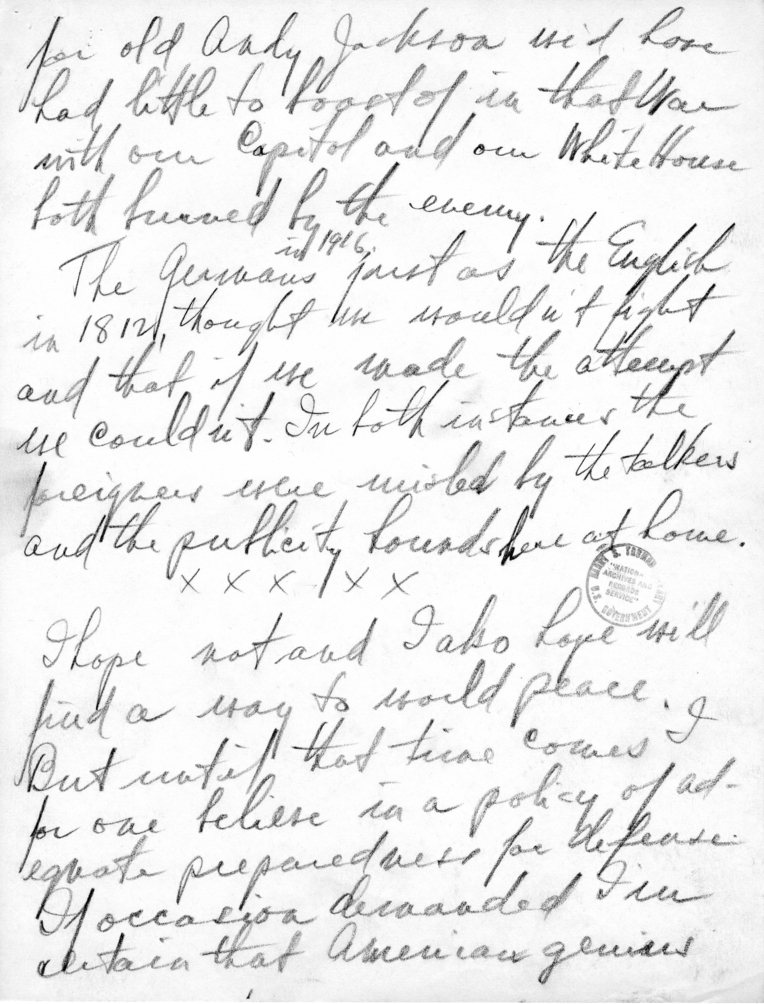 for old Andy Jackson we'd have
had little to boast of in that War
with our Capitol and our White House
both burned by the enemy.
in 1916,
The Germans just as the English
in 1812, thought we wouldn't fight
and that if we made the attempt
we couldn't. In both instances the
foreigners were misled by the talkers
and the publicity hounds here at home.
x x x x x
HARRY S. TRUMAN
"NATIONAL
ARCHIVES AND
RECORDS
SERVICE"
U.S. GOVERNMENT
I hope not and I also hope we'll
find a way to world peace.
But until that time comes I
for one believe in a policy of ad-
equate preparedness for defense.
If occasion demanded I'm
certain that American genius